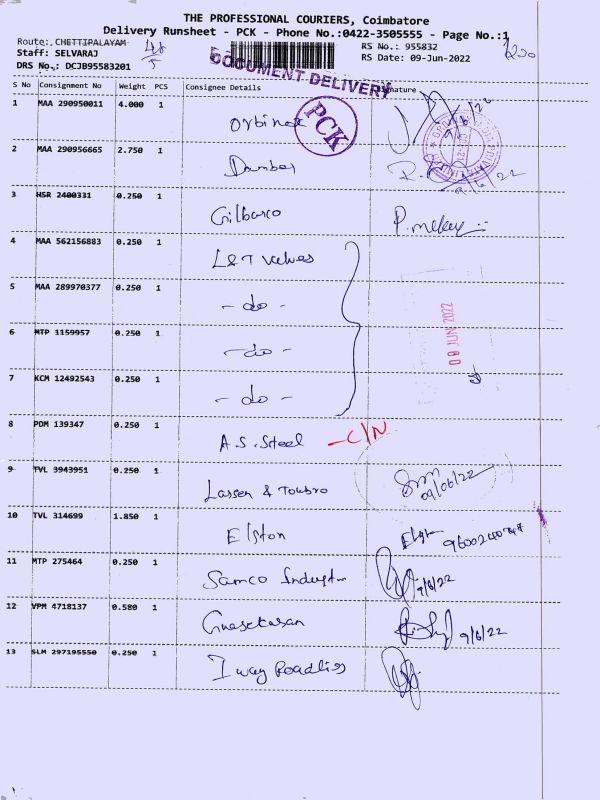 THE PROFESSIONAL COURIERS, Coimbatore
Delivery Runsheet - PCK - Phone No.:0422-3505555 - Page No.:1
Route: CHETTIPALAYAM
RS No.: 955832
Staff: SELVARAJ
RS Date: 09-Jun-2022
DRS No.: DCJB95583201
DOCUMENT DELIVERY
PCK
S No Consignment No Weight PCS Consignee Details Signature
1 MAA 290950011 4.000 1
2 MAA 290956665 2.750 1
3 HSR 2400331 0.250 1 Gilbarco
4 MAA 562156883 0.250 1 L&T Valves
5 MAA 289970377 0.250 1 - do -
09 JUN 2022
6 MTP 1159957 0.250 1 - do -
7 KCM 12492543 0.250 1 - do -
8 PDM 139347 0.250 1 A.S. Steel - C/N
9 TVL 3943951 0.250 1 Larsen & Toubro 09/06/22
10 TVL 314699 1.850 1 Elston
11 MTP 275464 0.250 1 Samco 9/6/22
12 VPM 4718137 0.580 1 9/6/22
13 SLM 297195550 0.250 1 I way